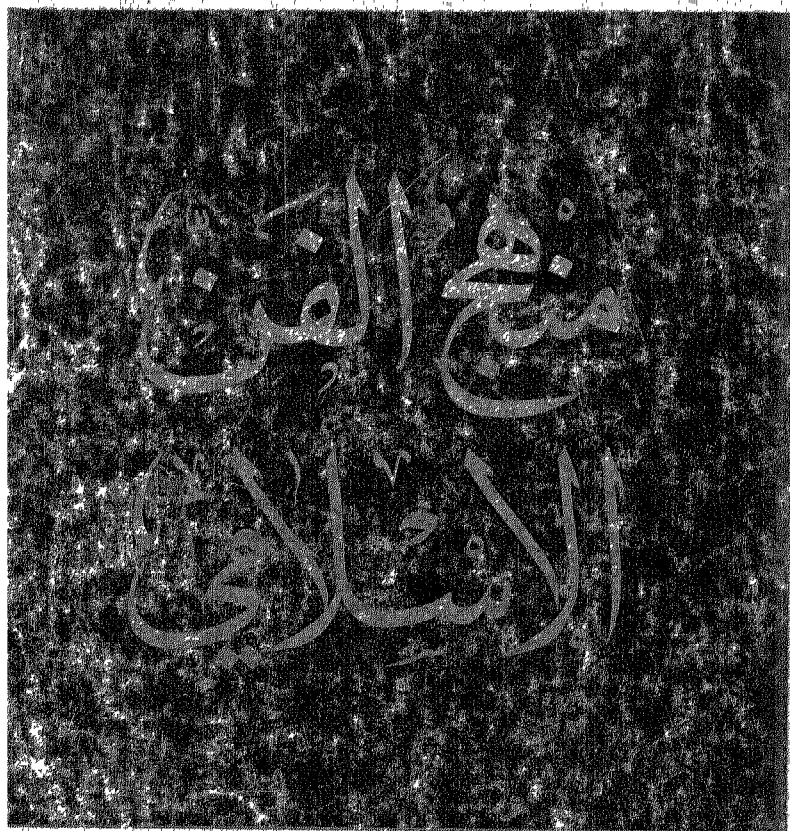 منهج الفن
الاسلامي